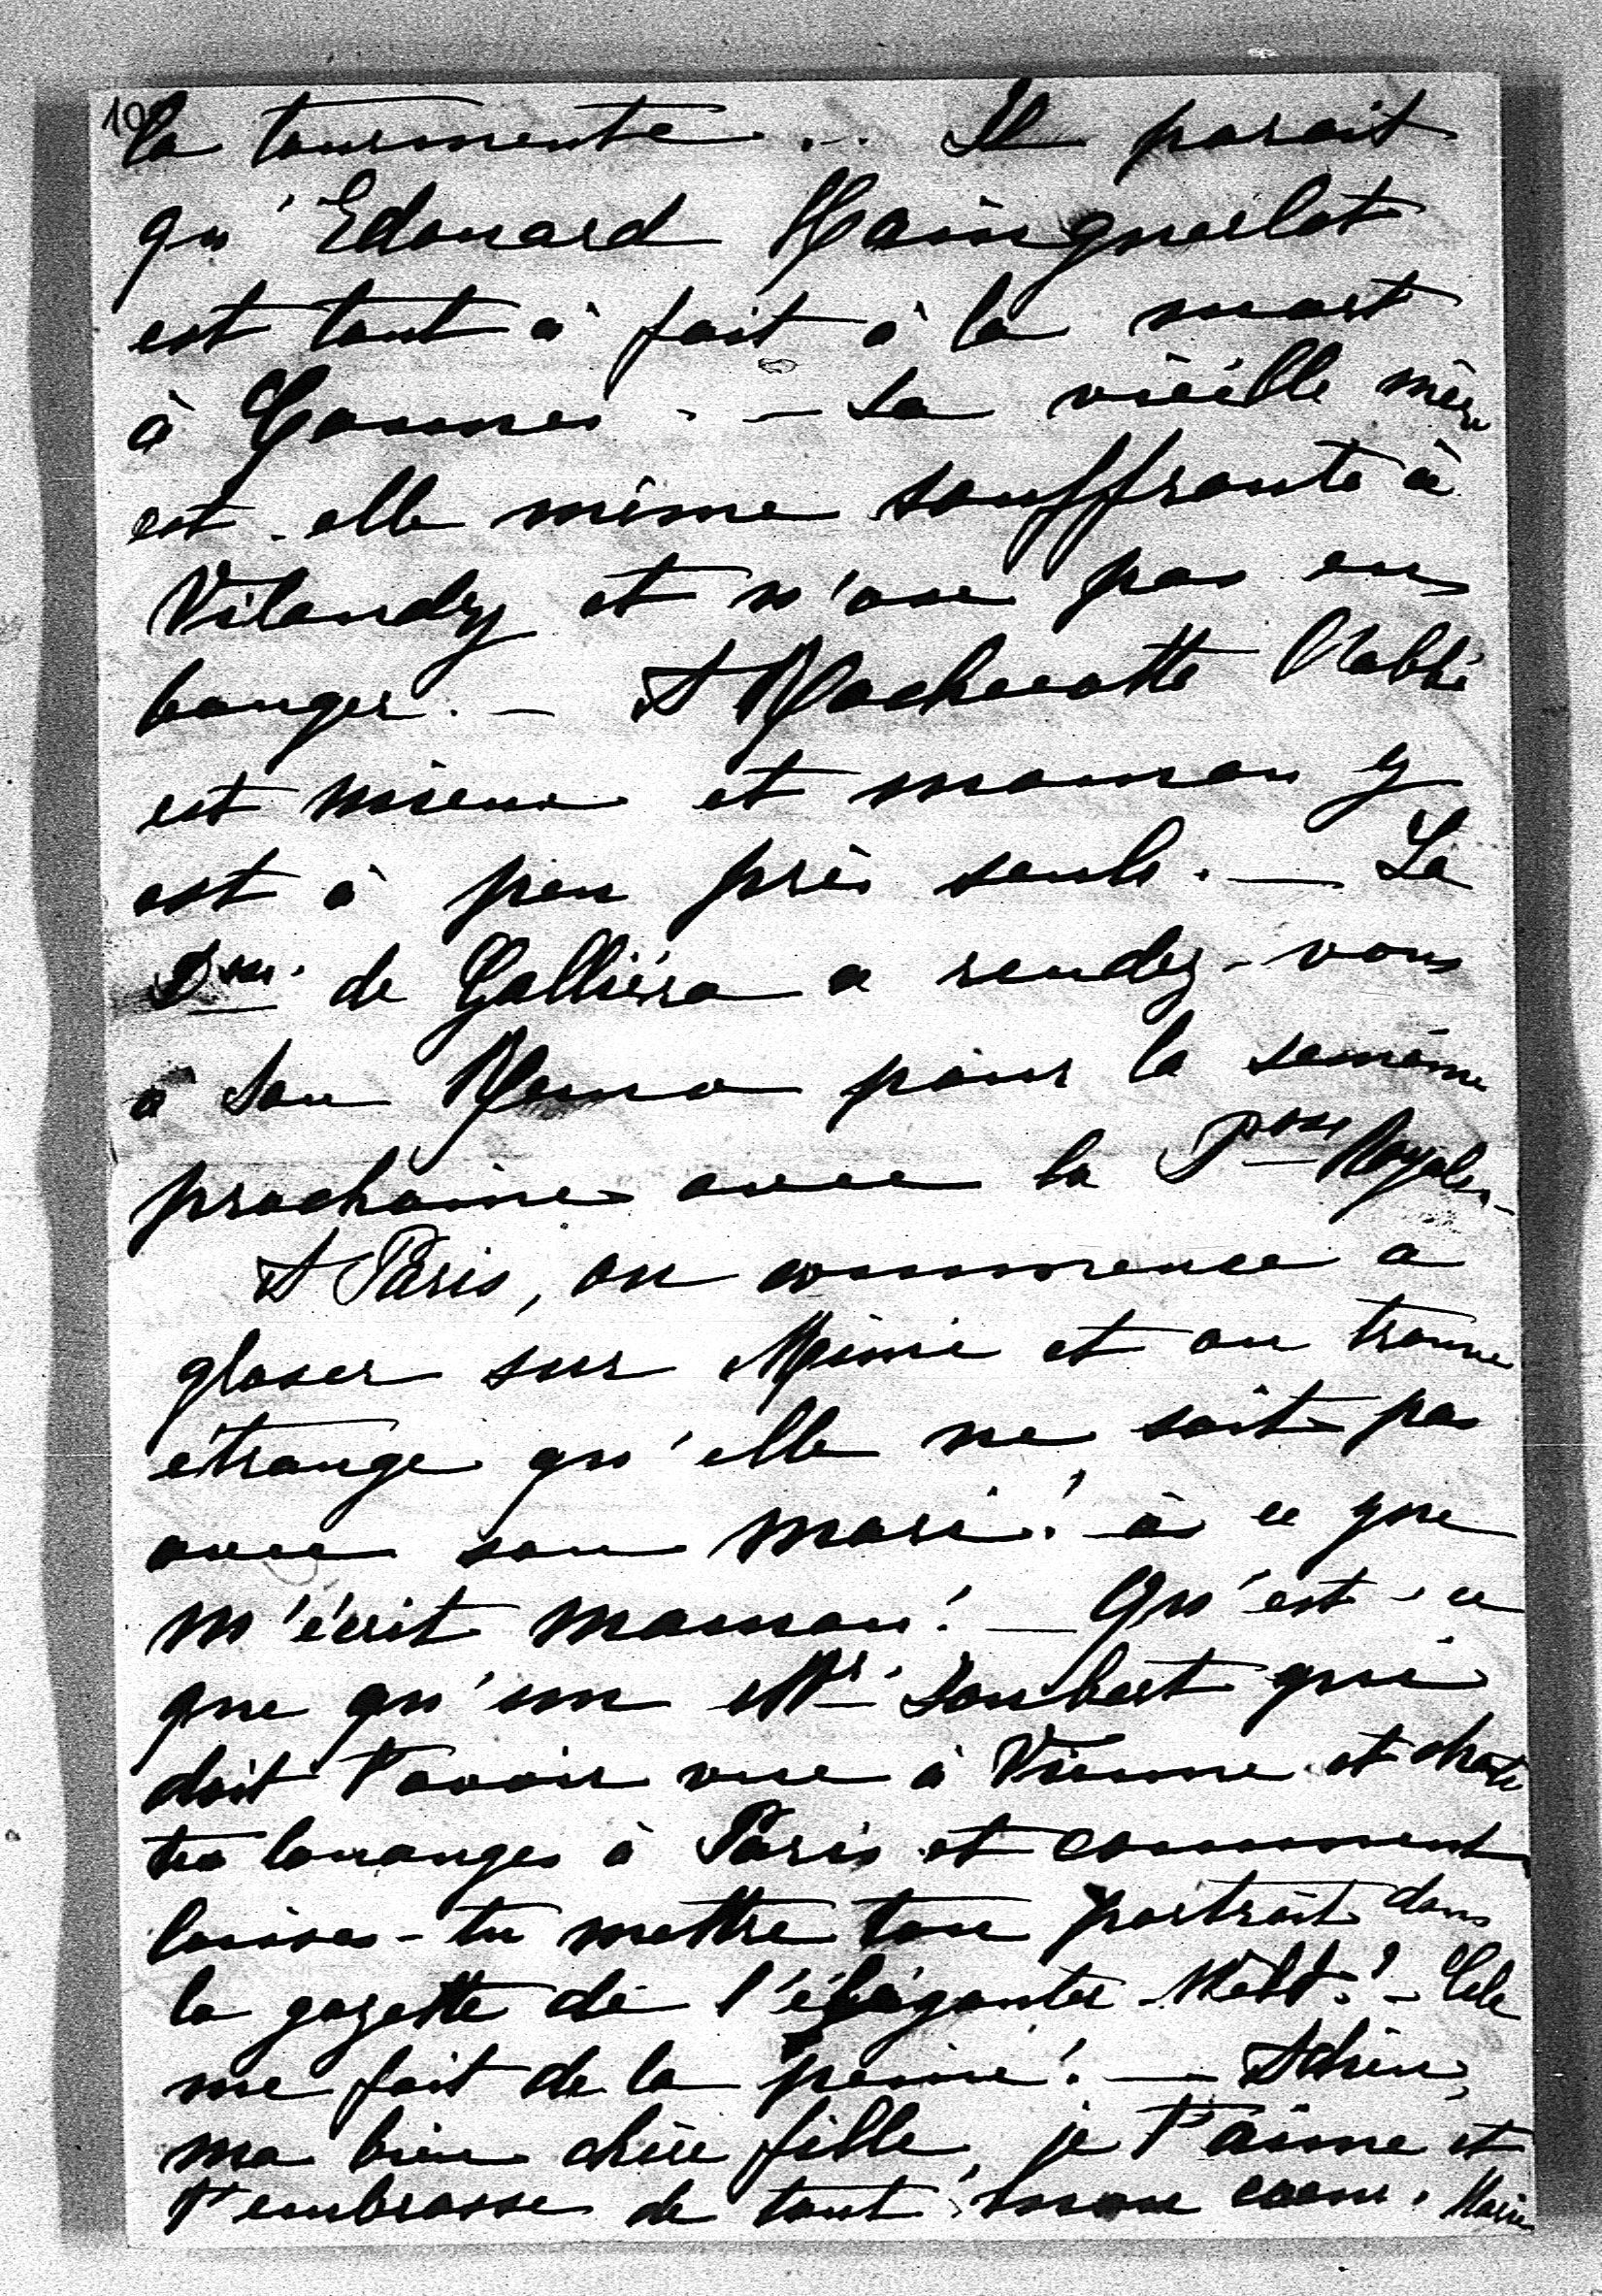 10
la tourmente... Il parait
qu'Edouard Hainguerlot
est tout à fait à la mort
à Cannes. - Sa vieille mère
est elle même souffrante à
Vilandry et n'ose pas en
bouger. - A Rochecotte l'abbé
est mieux et maman y
est à peu près seule. - La
Dsse. de Galliéra a rendez-vous
à San Remo pour la semaine
prochaine avec la Psse Royale. -
A Paris, on commence a
gloser sur Mimi et on trouve
étrange qu'elle ne soit pas
avec son mari! à ce que
m'écrit maman! - Qu'est-ce
que qu'un Mr. Joubert qui
doit t'avoir vue à Vienne et chante
tes louanges à Paris et comment
laisses-tu mettre ton portrait dans
la gazette de l'élégante Welt? - Cela
me fait de la peine! - Adieu,
ma bien chère fille, je t'aime et
t'embrasse de tout mon coeur. Marie